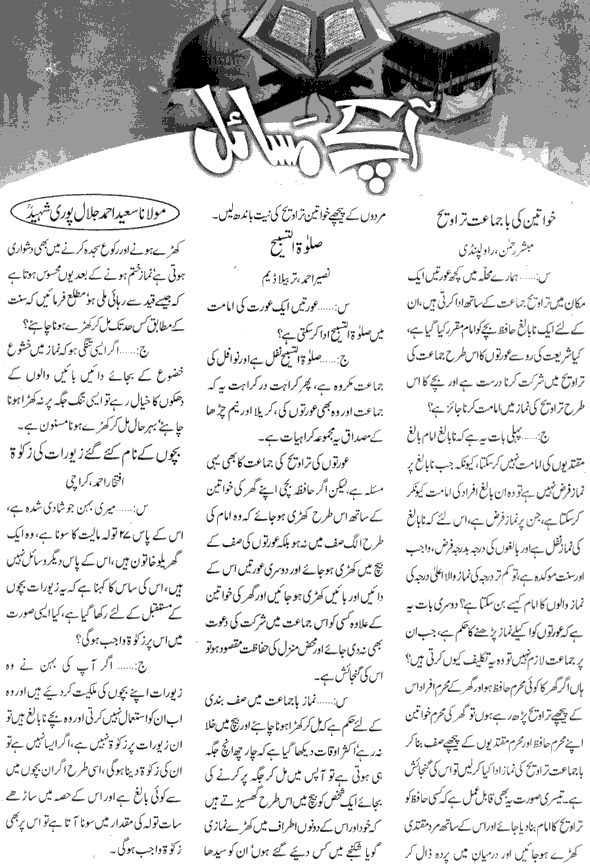 آپ کے مسائل
خواتین کی با جماعت تراویح
مبشر رحمٰن، راولپنڈی
س:...... ہمارے محلّہ میں کچھ عورتیں ایک
مکان میں تراویح جماعت کے ساتھ ادا کرتی ہیں، ان
کے لئے ایک نابالغ حافظ بچے کو امام مقرر کیا گیا ہے،
کیا شریعت کی رو سے عورتوں کا اس طرح جماعت کی
تراویح میں شرکت کرنا درست ہے اور بچے کا اس
طرح تراویح کی نماز میں امامت کرنا جائز ہے؟
ج:...... پہلی بات یہ ہے کہ نابالغ امام بالغ
مقتدیوں کی امامت نہیں کرسکتا، کیونکہ جب نابالغ پر
نماز فرض نہیں ہے تو وہ ان بالغ افراد کی امامت کیونکر
کرسکتا ہے، جن پر نماز فرض ہے، اس لئے کہ نابالغ
کی نماز نفل ہے اور بالغوں کی درجہ بدرجہ فرض، واجب
اور سنت موکدہ ہے، تو کم تر درجہ کی نماز والا اعلیٰ درجہ کی
نماز والوں کا امام کیسے بن سکتا ہے؟ دوسری بات یہ
ہے کہ عورتوں کو اکیلے نماز پڑھنے کا حکم ہے، جب ان
پر جماعت لازم نہیں تو وہ یہ تکلیف کیوں کرتی ہیں؟
ہاں اگر گھر کا کوئی محرم حافظ ہو اور گھر کے محرم افراد اس
کے پیچھے تراویح پڑھ رہے ہوں تو گھر کی محرم خواتین
اپنے محرم حافظ اور محرم مقتدیوں کے پیچھے صف بنا کر
با جماعت تراویح کی نماز ادا کیا کریں تو اس کی گنجائش
ہے۔ تیسری صورت یہ بھی قابل عمل ہے کہ کسی حافظ کو
تراویح کا امام بنادیا جائے اور اس کے ساتھ مرد مقتدی
کھڑے ہوجائیں اور درمیان میں پردہ ڈال کر
مردوں کے پیچھے خواتین تراویح کی نیت باندھ لیں۔
صلوٰۃ التسبیح
نصیر احمد، تربیلا ڈیم
س:...... عورتیں ایک عورت کی امامت
میں صلوٰۃ التسبیح ادا کرسکتی ہے؟
ج:...... صلوٰۃ التسبیح نفل ہے اور نوافل کی
جماعت مکروہ ہے، پھر کراہت در کراہت یہ کہ
جماعت اور وہ بھی عورتوں کی، کریلا اور نیم چڑھا
کے مصداق یہ مجموعہ کراہیات ہے۔
عورتوں کی تراویح کی جماعت کا بھی یہی
مسئلہ ہے، لیکن اگر حافظہ بچی اپنے گھر کی خواتین
کے ساتھ اس طرح کھڑی ہوجائے کہ وہ امام کی
طرح الگ صف میں نہ ہو بلکہ عورتوں کی صف کے
بیچ میں کھڑی ہوجائے اور دوسری عورتیں اس کے
دائیں اور بائیں کھڑی ہوجائیں اور گھر کی خواتین
کے علاوہ کسی کو اس جماعت میں شرکت کی دعوت
بھی نہ دی جائے اور محض منزل کی حفاظت مقصود ہو تو
اس کی گنجائش ہے۔
س:...... نماز با جماعت میں صف بندی
کے لئے حکم ہے کہ مل کر کھڑا ہونا چاہئے اور بیچ میں خلا
نہ رہے، اکثر اوقات دیکھا گیا ہے کہ چار چھ انچ جگہ
ہی ہوتی ہے تو آپس میں مل کر جگہ پر کرنے کی
بجائے ایک شخص کو بیچ میں اس طرح گھسیڑتے ہیں
کہ خود اور اس کے دونوں اطراف میں کھڑے نمازی
گویا شکنجے میں کس دیئے گئے ہوں، ان کو سیدھا
مولانا سعید احمد جلال پوری شہیدؒ
کھڑے ہونے اور رکوع سجدہ کرنے میں بھی دشواری
ہوتی ہے، نماز ختم ہونے کے بعد یوں محسوس ہوتا ہے
کہ جیسے قید سے رہائی ملی ہو، مطلع فرمائیں کہ سنت
کے مطابق کس حد تک مل کر کھڑے ہونا چاہئے؟
ج:...... اگر ایسی تنگی ہو کہ نماز میں خشوع
خضوع کے بجائے دائیں بائیں والوں کے
دھکوں کا خیال رہے تو ایسی تنگ جگہ پر نہ کھڑا ہونا
چاہئے بہرحال مل کر کھڑے ہونا مسنون ہے۔
بچوں کے نام کئے گئے زیورات کی زکوٰۃ
افتخار احمد، کراچی
س:...... میری بہن جو شادی شدہ ہے،
اس کے پاس ۲۴ تولہ مالیت کا سونا ہے، وہ ایک
گھریلو خاتون ہیں، اس کے پاس دیگر وسائل نہیں
ہیں، اس کی ساس کا کہنا ہے کہ یہ زیورات بچوں
کے مستقبل کے لئے رکھا گیا ہے، کیا ایسی صورت
میں اس پر زکوٰۃ واجب ہوگی؟
ج:...... اگر آپ کی بہن نے وہ
زیورات اپنے بچوں کی ملکیت کردیئے ہیں اور وہ
اب ان کو استعمال نہیں کرتی اور وہ بچے نابالغ ہیں تو
ان زیورات پر زکوٰۃ نہیں ہے، اگر ایسا نہیں ہے تو
ان کی زکوٰۃ دینا ہوگی، اسی طرح اگر ان بچوں میں
سے کوئی بالغ ہے اور اس کے حصہ میں ساڑھے
سات تولہ کی مقدار میں سونا آتا ہے تو اس پر بھی
زکوٰۃ واجب ہوگی۔